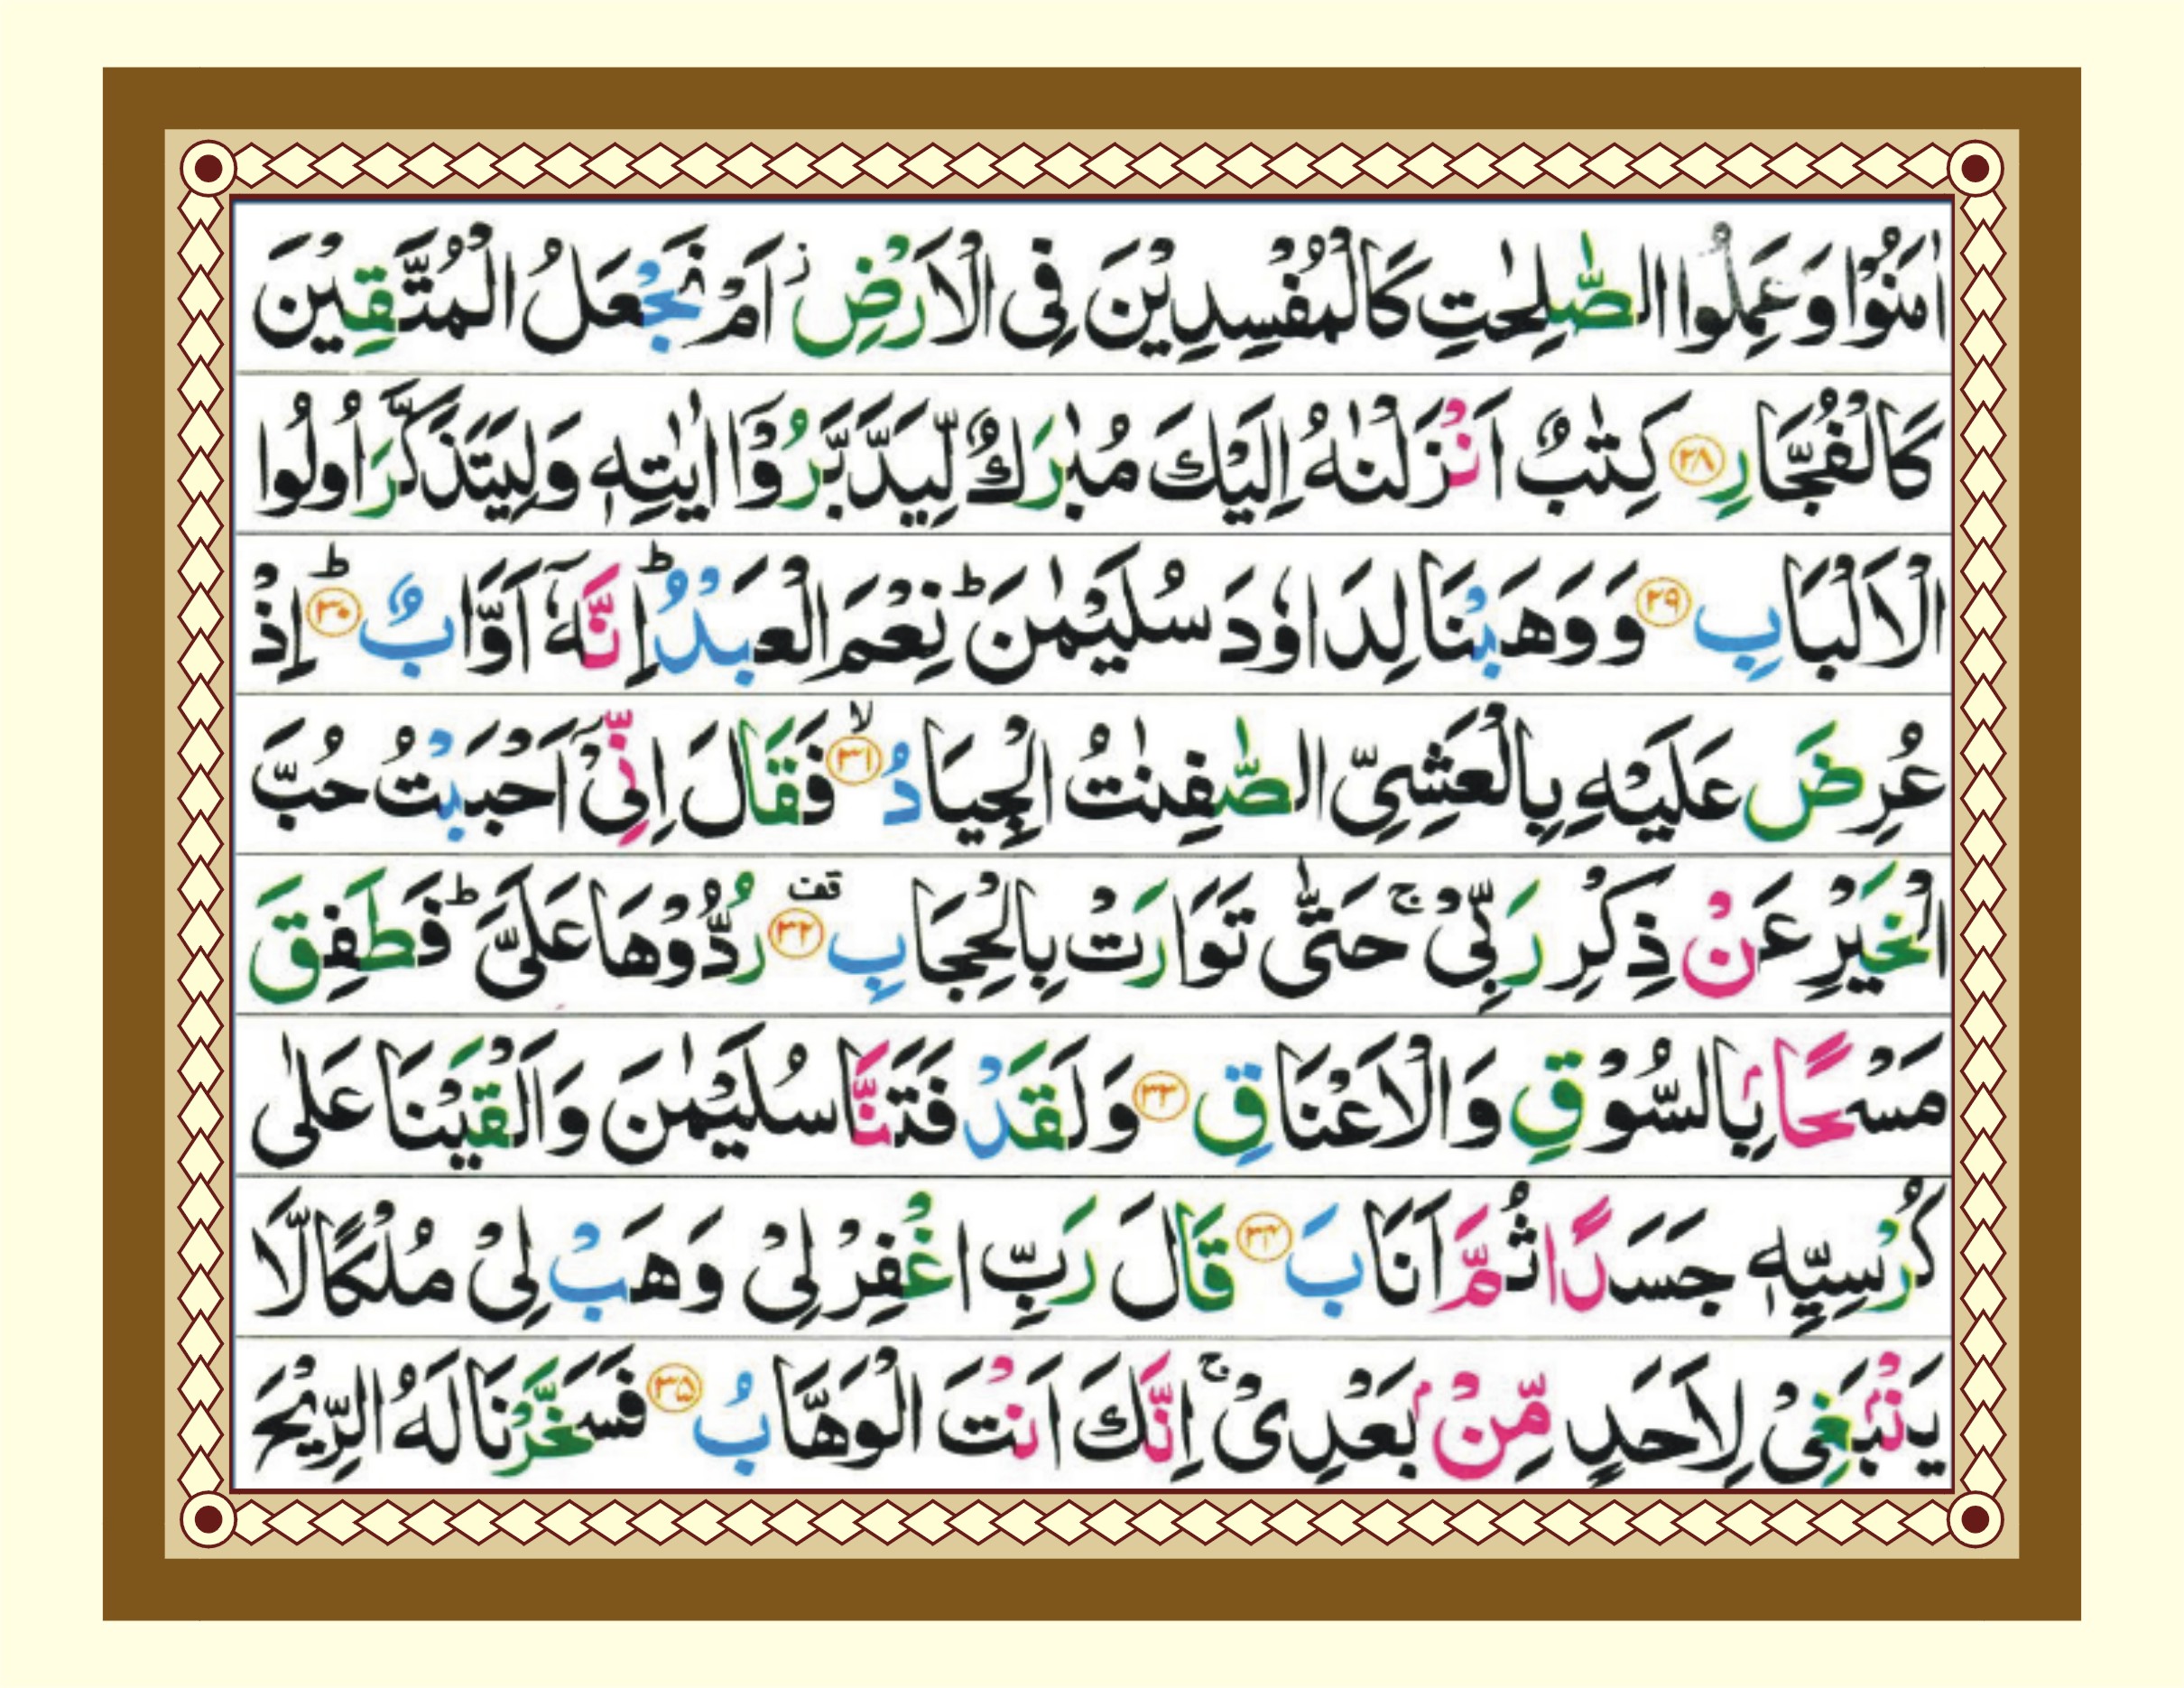 اٰمَنُوْا وَعَمِلُوا الصّٰلِحٰتِ كَالْمُفْسِدِيْنَ فِى الْاَرْضِ ز اَمْ نَجْعَلُ الْمُتَّقِيْنَ
كَالْفُجَّارِ ﴿۲۸﴾ كِتٰبٌ اَنْزَلْنٰهُ اِلَيْكَ مُبٰرَكٌ لِّيَدَّبَّرُوْۤا اٰيٰتِهٖ وَلِيَتَذَكَّرَ اُولُوا
الْاَلْبَابِ ﴿۲۹﴾ وَوَهَبْنَا لِدَاوٗدَ سُلَيْمٰنَ ؕ نِعْمَ الْعَبْدُ ؕ اِنَّهٗۤ اَوَّابٌ ؕ ﴿۳۰﴾ اِذْ
عُرِضَ عَلَيْهِ بِالْعَشِىِّ الصّٰفِنٰتُ الْجِيَادُ ۙ ﴿۳۱﴾ فَقَالَ اِنِّىْۤ اَحْبَبْتُ حُبَّ
الْخَيْرِ عَنْ ذِكْرِ رَبِّىْ ۚ حَتّٰى تَوَارَتْ بِالْحِجَابِ قف ﴿۳۲﴾ رُدُّوْهَا عَلَىَّ ؕ فَطَفِقَ
مَسْحًۢا بِالسُّوْقِ وَالْاَعْنَاقِ ﴿۳۳﴾ وَلَقَدْ فَتَنَّا سُلَيْمٰنَ وَاَلْقَيْنَا عَلٰى
كُرْسِيِّهٖ جَسَدًا ثُمَّ اَنَابَ ﴿۳۴﴾ قَالَ رَبِّ اغْفِرْ لِىْ وَهَبْ لِىْ مُلْكًا لَّا
يَنْۢبَغِىْ لِاَحَدٍ مِّنْۢ بَعْدِىْ ۚ اِنَّكَ اَنْتَ الْوَهَّابُ ﴿۳۵﴾ فَسَخَّرْنَا لَهُ الرِّيْحَ